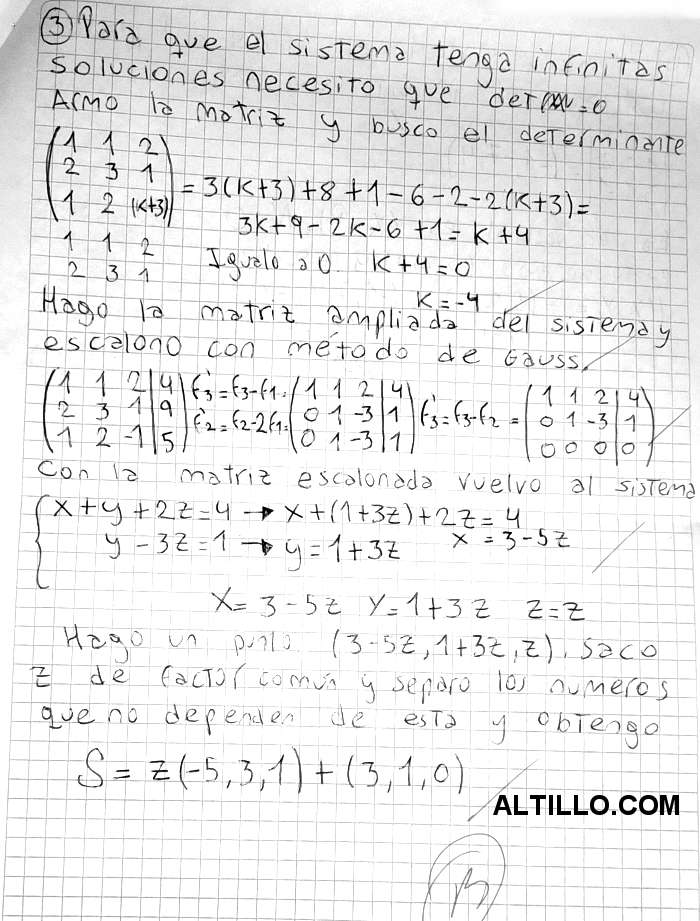 ③ Para que el sistema tenga infinitas
soluciones necesito que det = 0
Armo la matriz y busco el determinante
(1 1 2)
(2 3 1) = 3(K+3)+8+1-6-2-2(K+3)=
(1 2 (K+3)) 3K+9-2K-6+1=K+4
1 1 2
2 3 1 Igualo a 0. K+4=0
K=-4
Hago la matriz ampliada del sistema y
escalono con método de Gauss.
(1 1 2|4) f'3=f3-f1. (1 1 2|4) (1 1 2|4)
(2 3 1|9) f'2=f2-2f1= (0 1 -3|1) f'3=f3-f2 = (0 1 -3|1)
(1 2 -1|5) (0 1 -3|1) (0 0 0|0)
Con la matriz escalonada vuelvo al sistema
{x+y+2z=4 → x+(1+3z)+2z=4
y-3z=1 → y=1+3z x=3-5z
X=3-5z Y=1+3z z=z
Hago un punto (3-5z,1+3z,z). Saco
z de factor común y separo los numeros
que no dependen de esta y obtengo
S=z(-5,3,1)+(3,1,0)
ALTILLO.COM